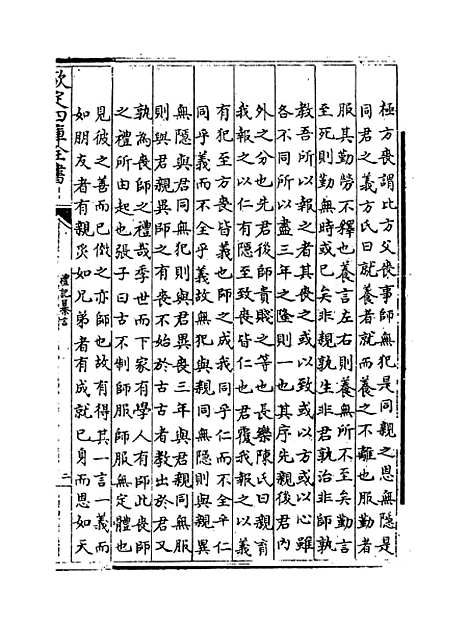 極方喪謂比方父喪事師無犯是同親之恩無隱是
同君之義方氏曰就養者就而養之不離也服勤者
服其勤勞不釋也養言左右則養無所不至矣勤言
至死則勤無時或已矣非親孰生非君孰治非師孰
教吾所以報之者其喪之或以致或以方或以心雖
各不同所以盡三年之隆則一也其序先親後君内
外之分也先君後師貴賤之等也長樂陳氏曰親育
我報之以仁有隱至致喪皆仁也君覆我報之以義
有犯至方喪皆義也師之成我同乎仁而不全乎仁
同乎義而不全乎義故無犯與親同無隱則與親異
無隱與君同無犯則與君異喪三年與君親同無服
則與君親異師之有喪不始於古古者教出於君又
孰為喪師之禮哉季世而下家有學人有師此喪師
之禮所由起也張子曰古不制師服師服無定體也
見彼之善而已傚之亦師也故有得其一言一義而
如朋友者有親炙如兄弟者有成就已身而恩如天
欽定四庫全書
禮記纂言
二